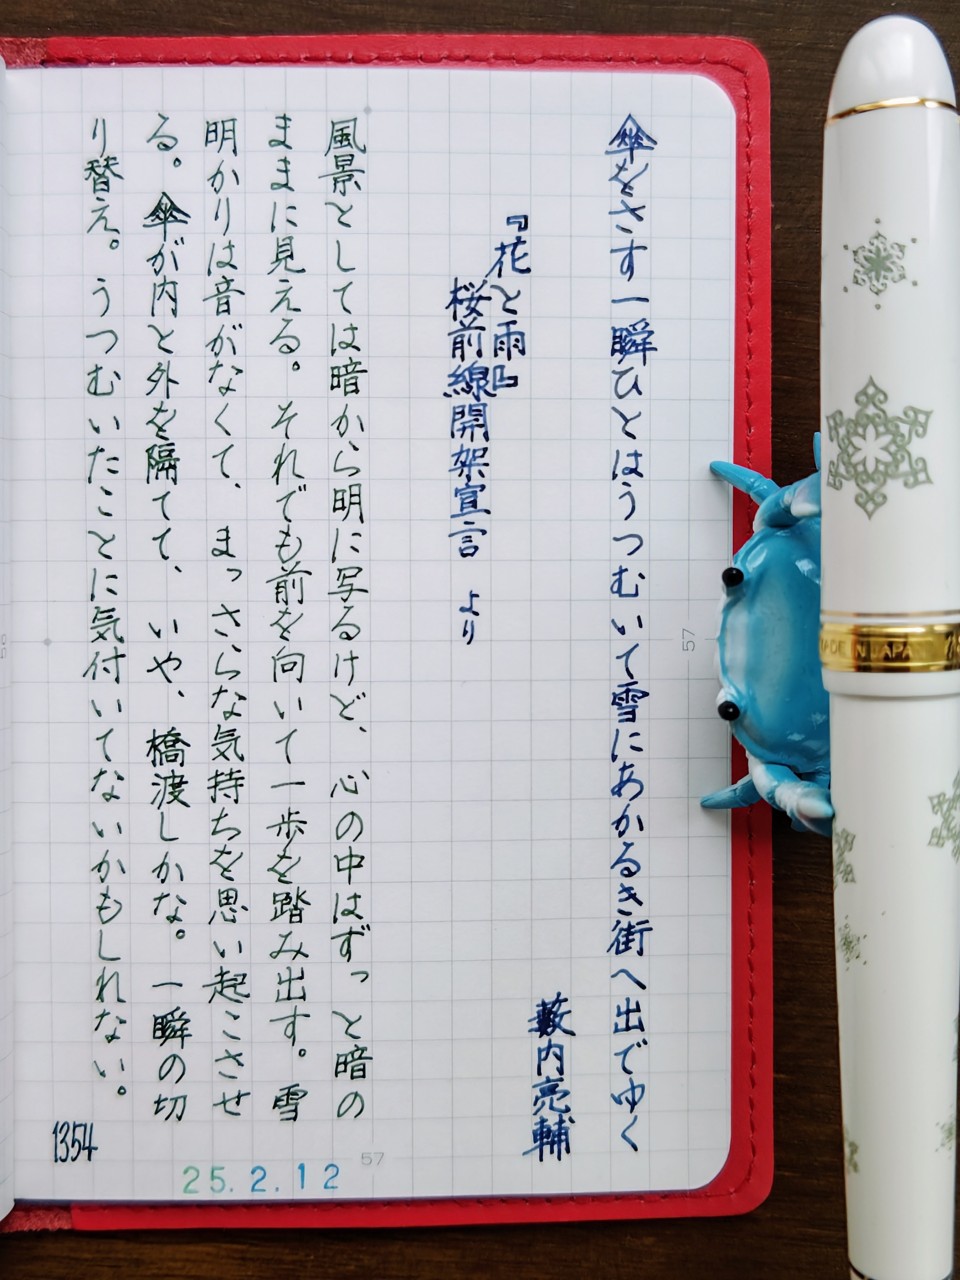 傘をさす一瞬ひとはうつむいて雪にあかるき街へ出でゆく
藪内亮輔
『花と雨』
桜前線開架宣言 より
風景としては暗から明に写るけど、心の中はずっと暗の
ままに見える。それでも前を向いて一歩を踏み出す。雪
明かりは音がなくて、まっさらな気持ちを思い起こさせ
る。傘が内と外を隔てて、いや、橋渡しかな。一瞬の切
り替え。うつむいたことに気付いてないかもしれない。
1354
25.2.12
57
57
MADE IN JAPAN